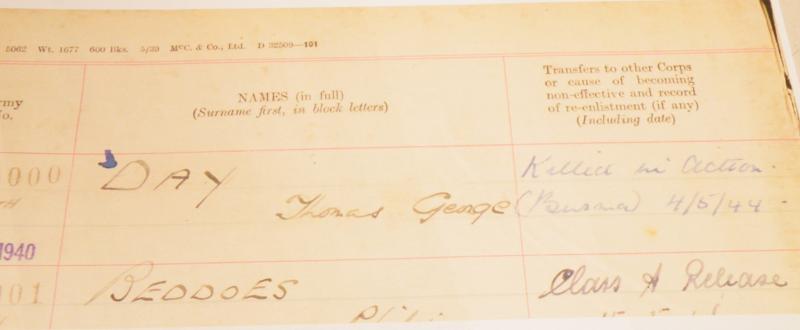 5062 Wt. 1677 600 Bks. 5/39 McC. & Co., Ltd. D 32509—101
rmy
No.
NAMES (in full)
(Surname first, in block letters)
Transfers to other Corps
or cause of becoming
non-effective and record
of re-enlistment (if any)
(Including date)
000
DAY
Thomas George
Killed in Action.
(Burma) 4/5/44 -
1940
001
BEDDOES
Class A Release